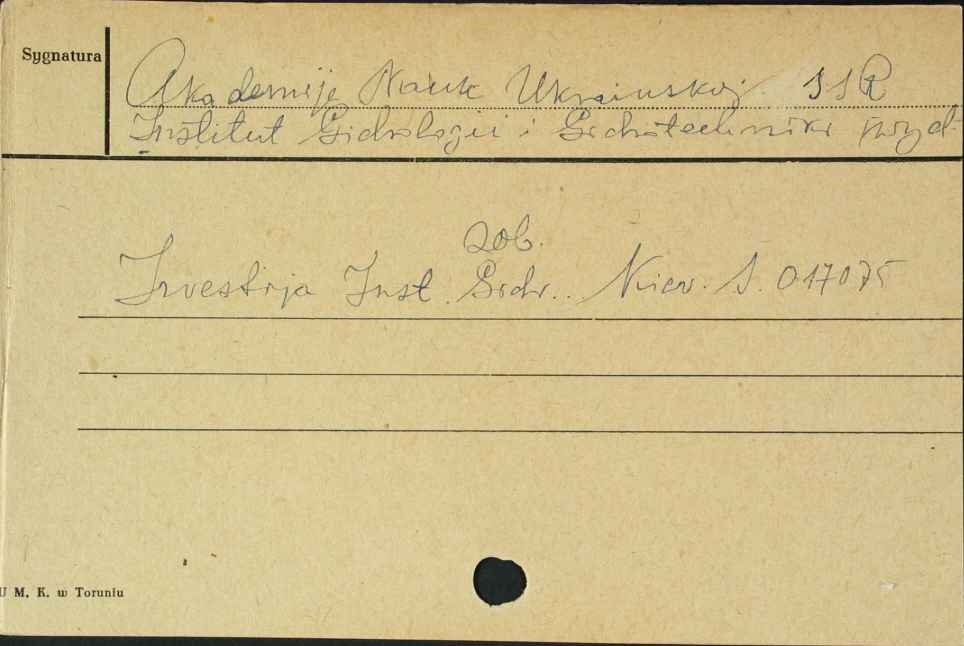 Sygnatura
Akademije Nauk Ukrainskoj SSR
Institut Gidrologii i Gidrotechniki
zob.
Izvestija Inst. Gidr.. Kiev. S. 017075
U M. K. w Toruniu